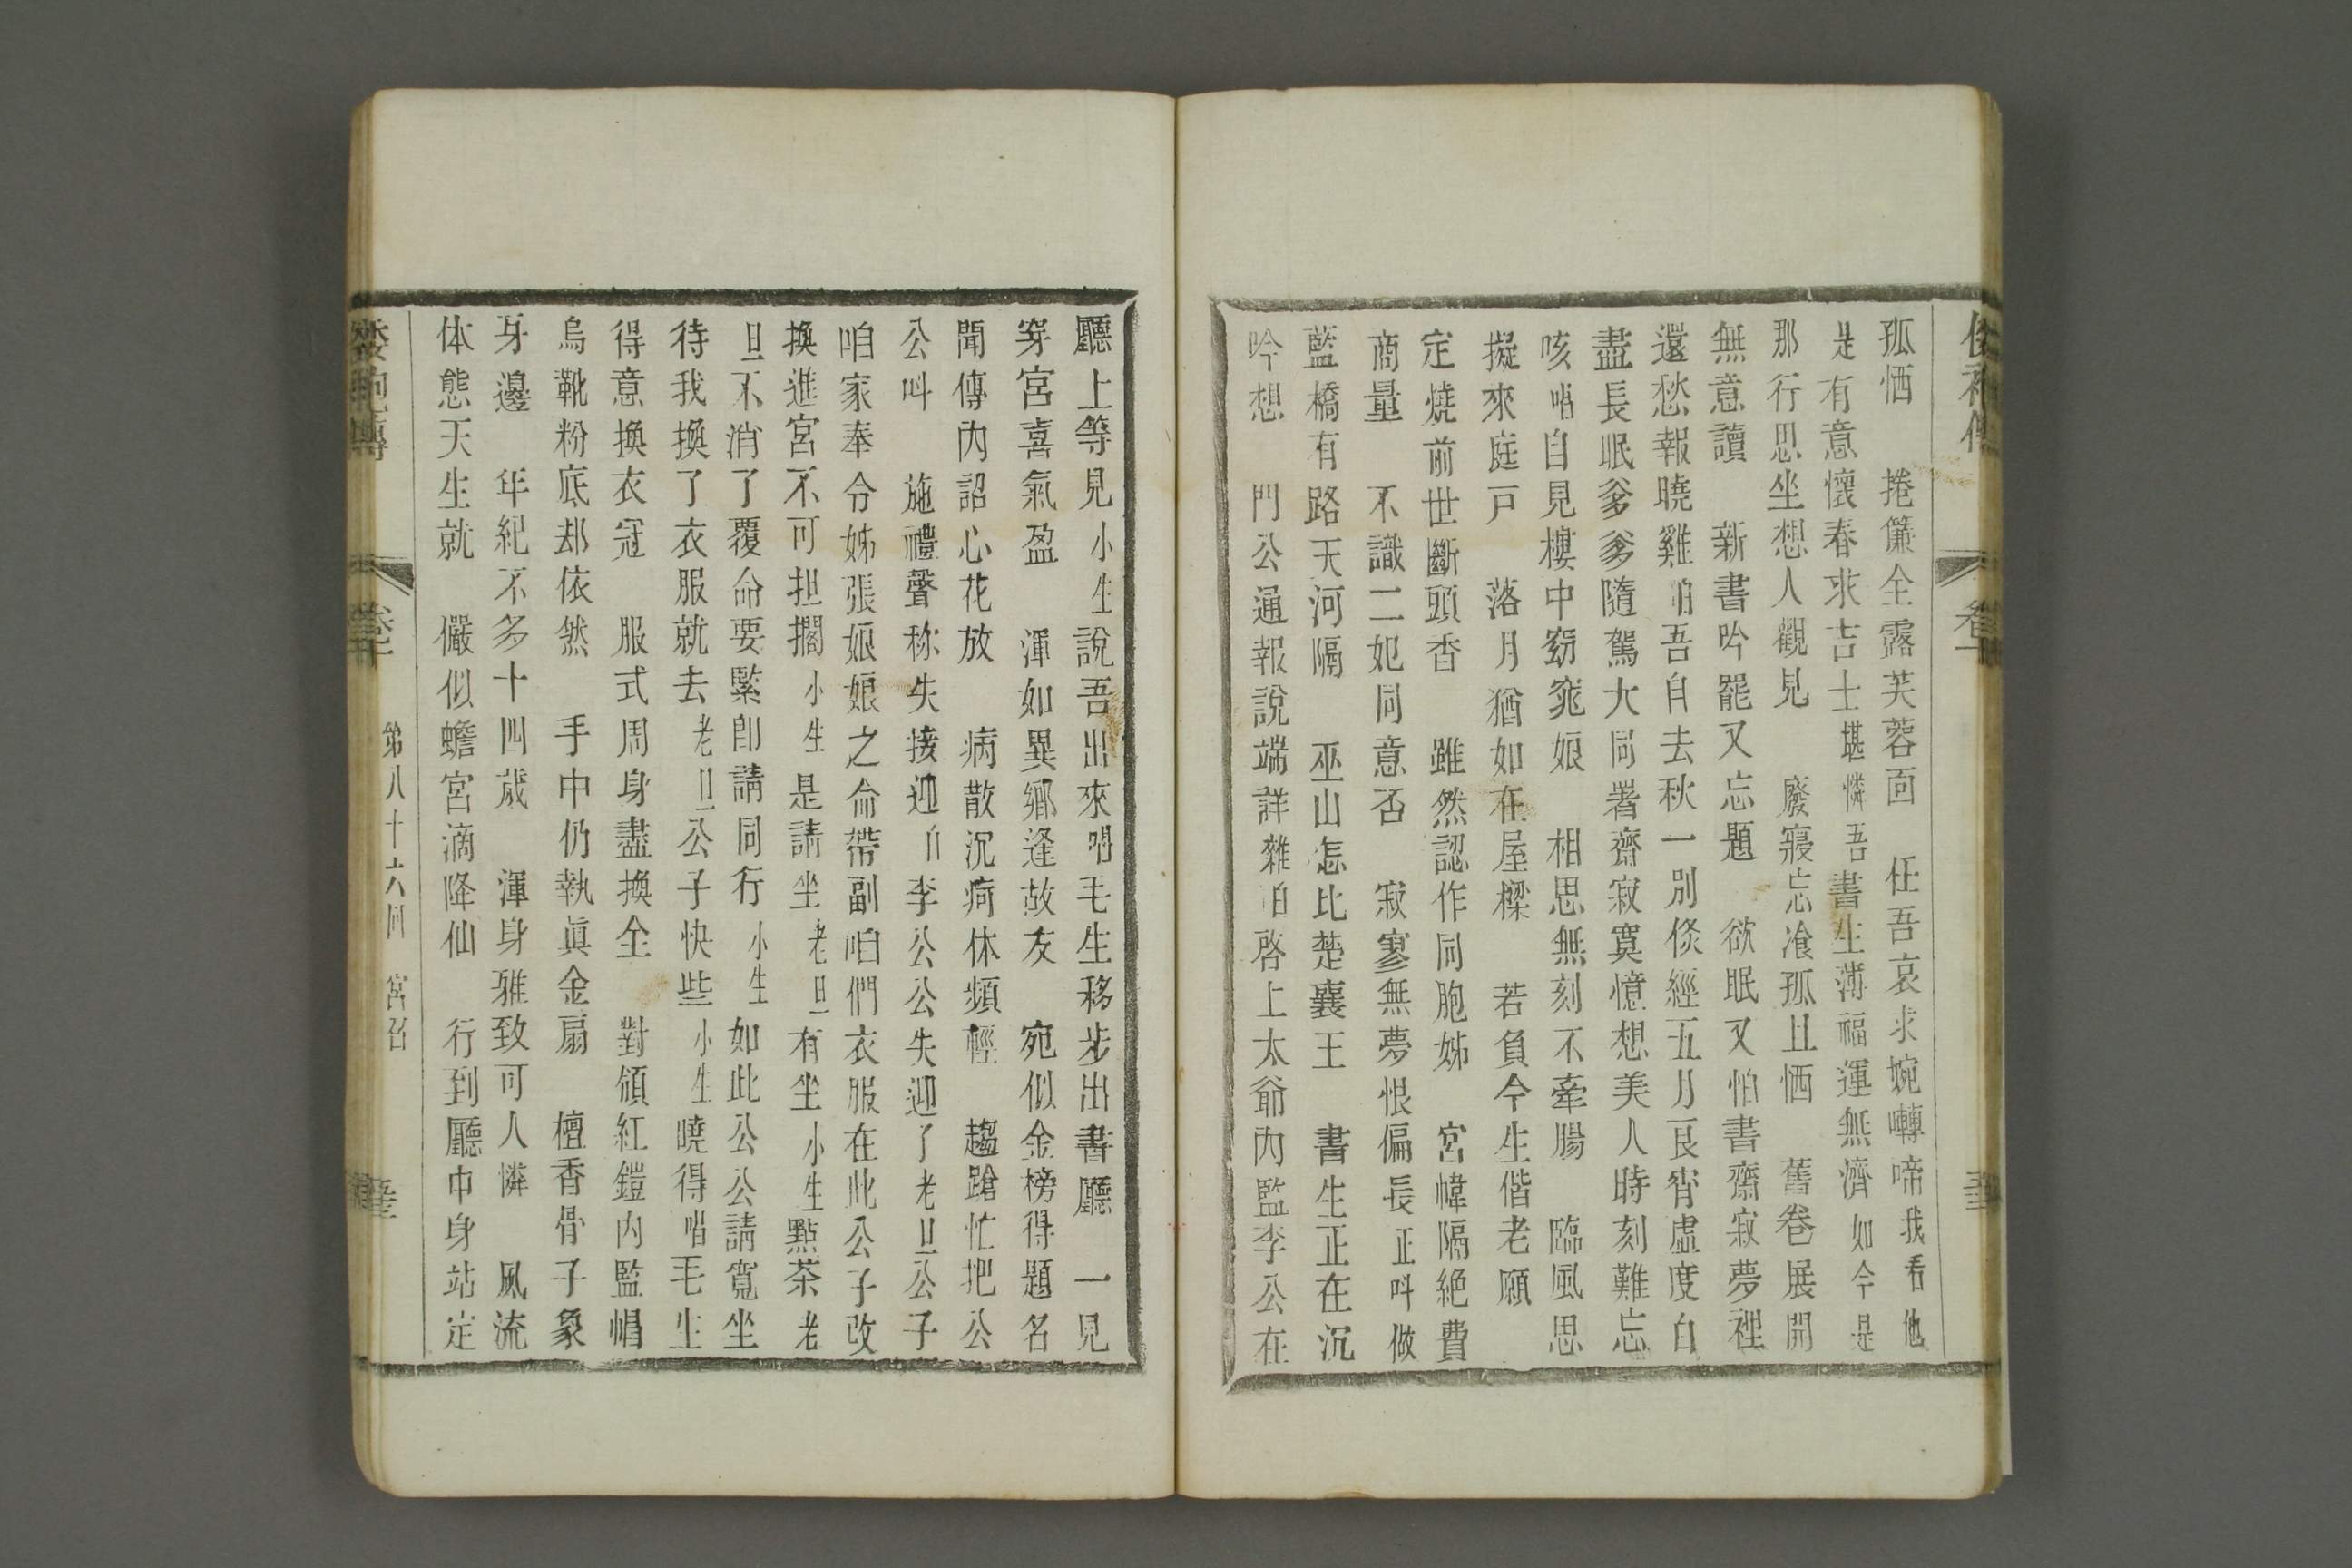 孤恓　捲簾全露芙蓉面　任吾哀求婉囀啼我看他
是有意懷春求吉士堪憐吾書生薄福運無濟如今是
那行思坐想人觀見　廢寢忘飡孤且恓　舊卷展開
無意讀　新書吟罷又忘題　欲眠又怕書齋寂夢裡
還愁報曉雞咱吾自去秋一別倐經五月良宵虛度白
盡長眠爹爹隨駕大同署齋寂寞憶想美人時刻難忘
咳唱自見樓中窈窕娘　相思無刻不牽腸　臨風思
擬來庭戸　落月猶如在屋樑　若負今生偕老願
定燒前世斷頭香　雖然認作同胞姊　宮幃隔絕費
商量　不識二妃同意否　寂寥無夢恨偏長正叫做
藍橋有路天河隔　巫山怎比楚襄王　書生正在沉
吟想　門公通報說端詳雜白啓上太爺內監李公在
廳上等見小生說吾出來唱毛生移步出書廳　一見
穿宮喜氣盈　渾如異鄉逢故友　宛似金榜得題名
聞傳內詔心花放　病散沉疴休頻輕　趨蹌忙把公
公叫　施禮聲称失接迎白李公公失迎了老旦公子
咱家奉令姊張娘娘之命帶副咱們衣服在此公子改
換進宮不可担擱小生是請坐老旦有坐小生點茶老
旦不消了覆命要緊卽請同行小生如此公公請寬坐
待我換了衣服就去老旦公子快些小生曉得唱毛生
得意換衣冠　服式周身盡換全　對領紅鎧內監帽
烏靴粉底却依然　手中仍執眞金扇　檀香骨子象
牙邊　年紀不多十四歲　渾身雅致可人憐　風流
体態天生就　儼似蟾宮滴降仙　行到廳中身站定
第八十六回　宮召